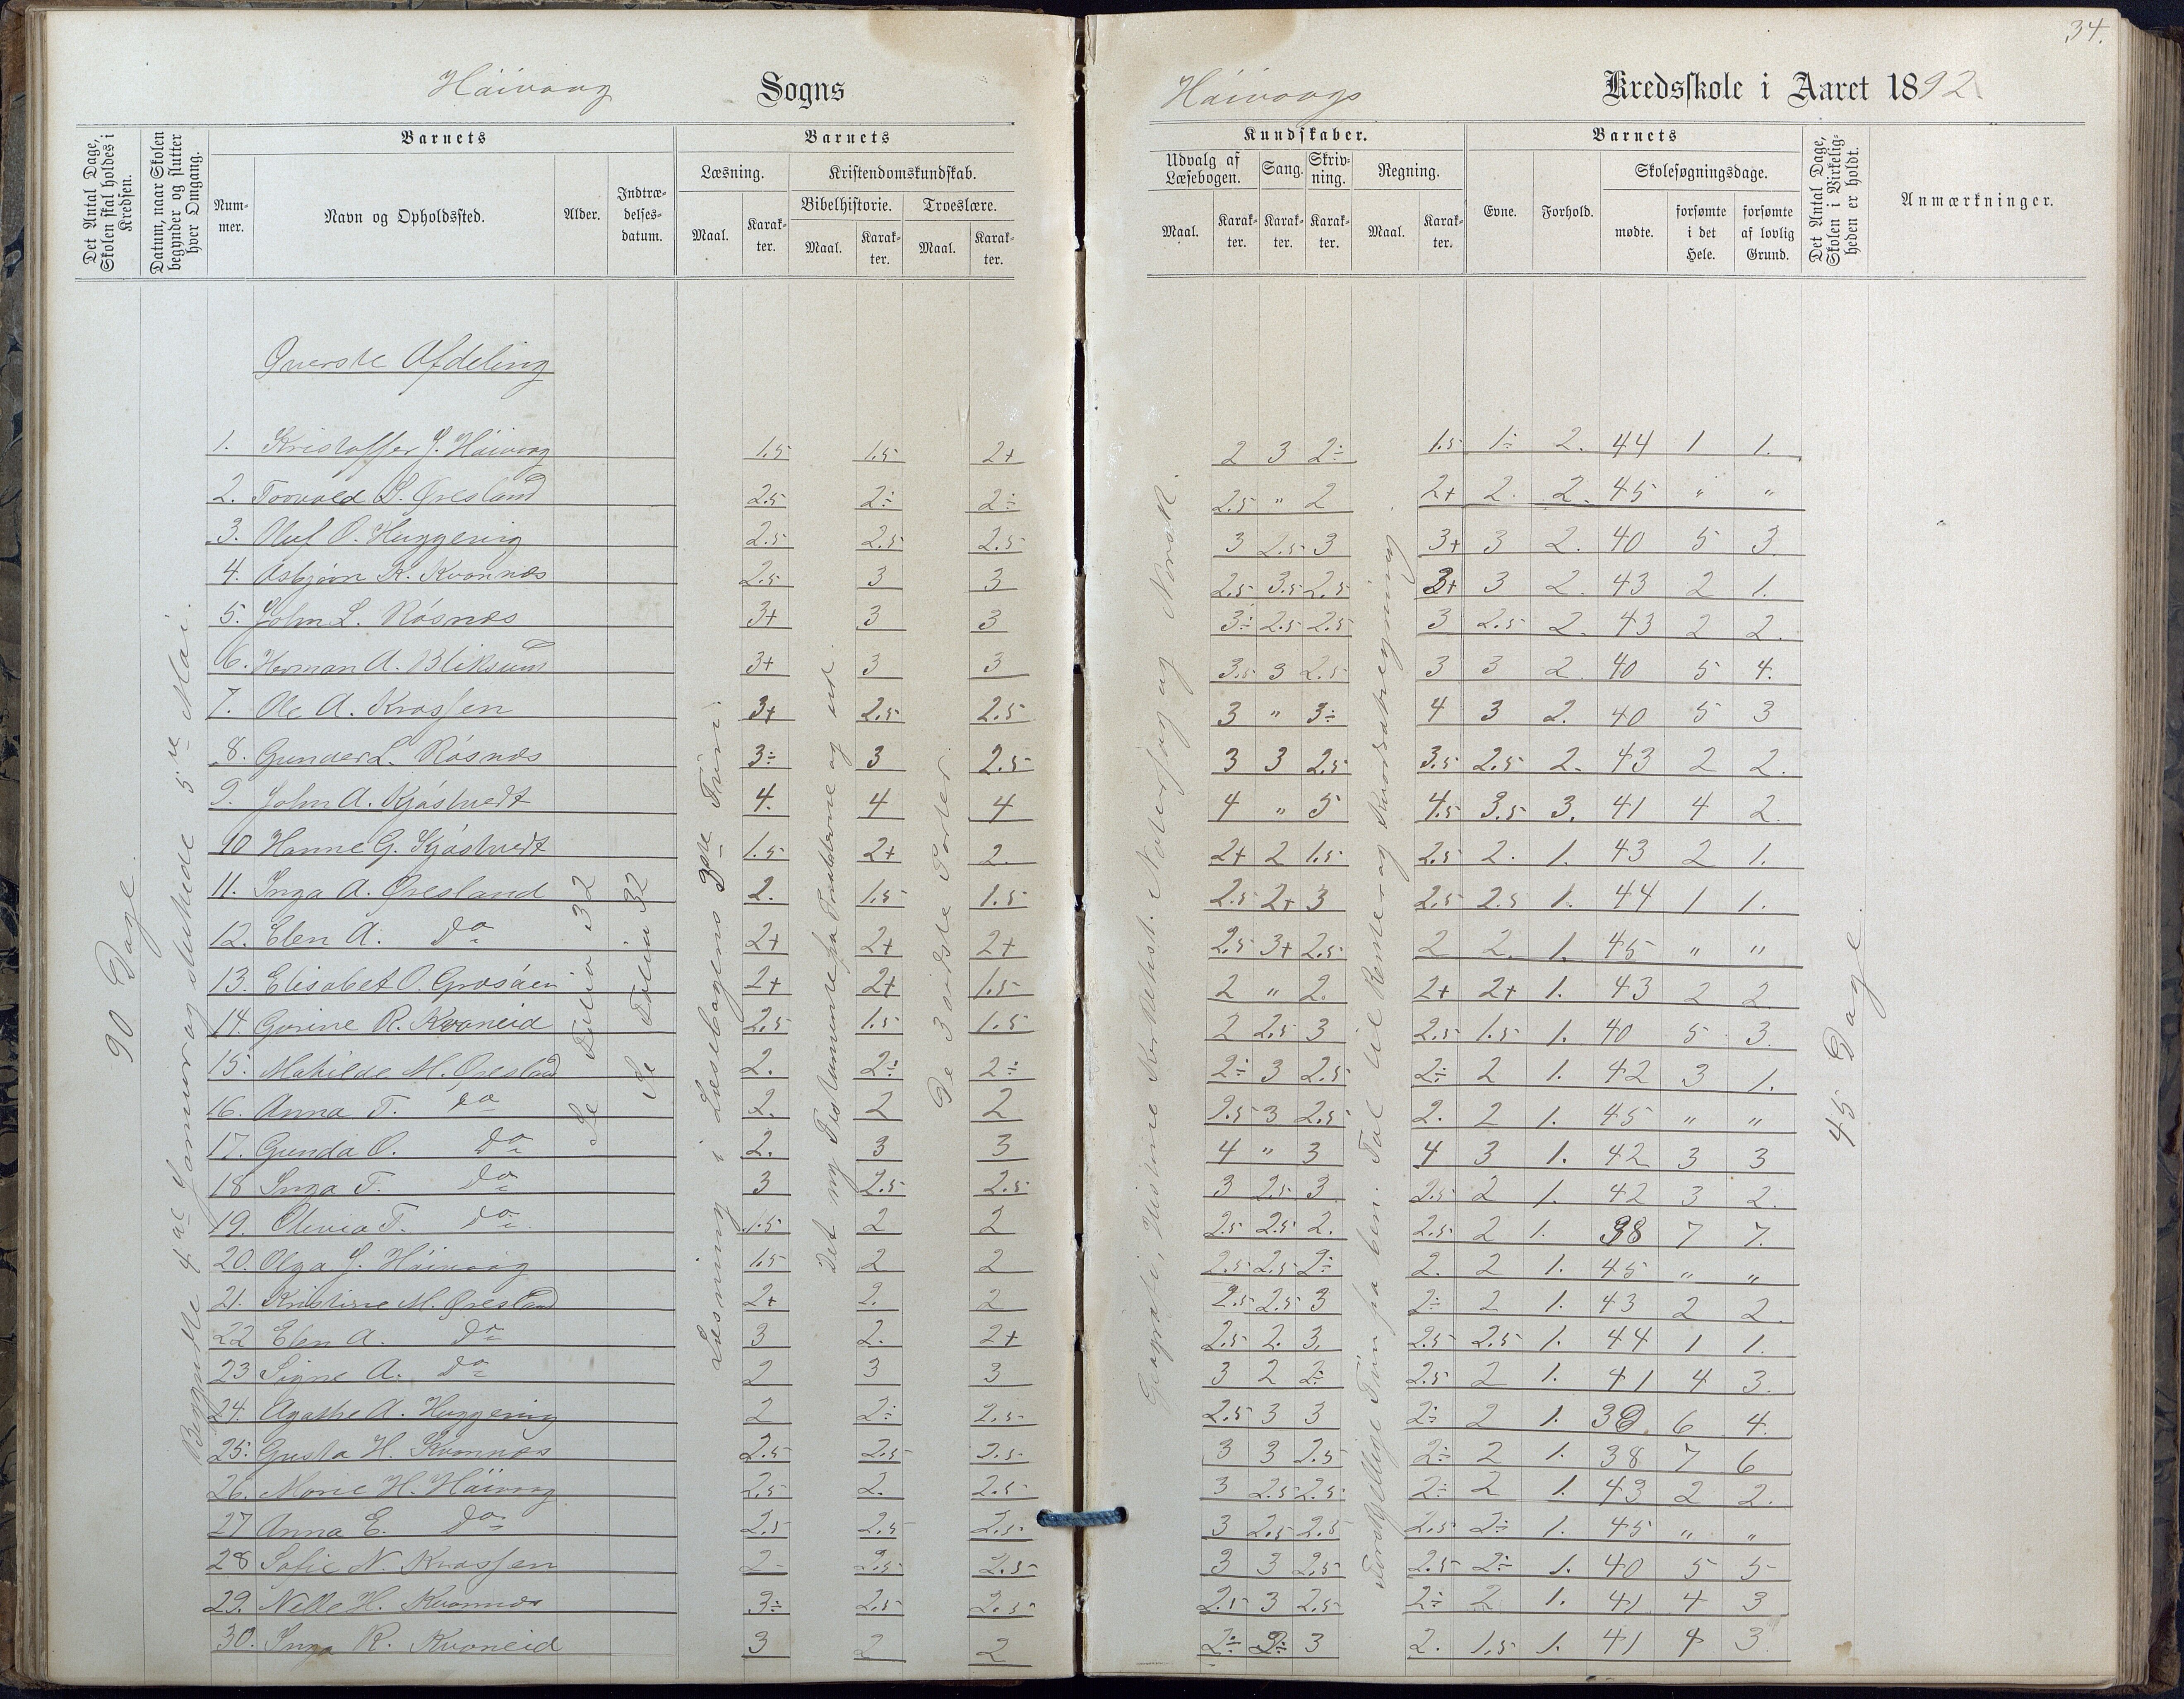 34.
Håivaag Sogns
Håivaags Kredsskole i Aaret 1892
Det Antal Dage, Skolen skal holdes i Kredsen.
Datum, naar Skolen begynder og slutter hver Omgang.
Barnets
Num-mer.
Navn og Opholdssted.
Alder.
Indtræ-delses-datum.
Barnets
Læsning.
Maal.
Karak-ter.
Kristendomskundskab.
Bibelhistorie.
Maal.
Karak-ter.
Troeslære.
Maal.
Karak-ter.
Kundskaber.
Udvalg af Læsebogen.
Maal.
Karak-ter.
Sang.
Karak-ter.
Skriv-ning.
Karak-ter.
Regning.
Maal.
Karak-ter.
Barnets
Evne.
Forhold.
Skolesøgningsdage.
mødte.
forsømte i det Hele.
forsømte af lovlig Grund.
Det Antal Dage, Skolen i Virkelig-heden er holdt.
Anmærkninger.
90 Dage
Begyndte 4de Januar og sluttede 5te Mai.
Se Folio 32
Se Folio 32
Læsning i Læsebogens 3die Trin.
Det ny Testamente fra og ud.
De 3 sidste Parter
Geografi, Historie Naturfag og Norsk.
Forskjellige Trin fra ben. Tal til Rente og
45 Dage
Øverste Afdeling
1. Kristoffer J. Håivaag 1.5 1.5 2+ 2 3 2÷ 1.5 1÷ 2. 44 1 1.
2. Torvald S. Øresland 2.5 2÷ 2÷ 2.5 " 2 2+ 2. 2. 45 " "
3. Oluf O. Huggenig 2.5 2.5 2.5 3 2.5 3 3+ 3 2. 40 5 3.
4. Asbjørn K. Kvannes 2.5 3 3 2.5 3.5 2.5 3+ 3 2. 43 2 1.
5. John L. Røsnes 3+ 3 3 3÷ 2.5 2.5 3 2.5 2. 43 2 2.
6. Herman A. Bliksund 3+ 3 3 3.5 3 2.5 3 3 2. 40 5 4.
7. Ole A. Krossen 3+ 2.5 2.5 3 " 3÷ 4 3 2. 40 5 3
8. Gunder L. Røsnes 3÷ 3 2.5 3 3 2.5 3.5 2.5 2. 43 2 2.
9. John A. Kjøstvedt 4. 4 4 4 " 5 4.5 3.5 3. 41 4 2.
10 Hanne G. Kjøstvedt 1.5 2+ 2. 2+ 2 1.5 2.5 2. 1. 43 2 1.
11. Inga A. Øresland 2. 1.5 1.5 2.5 2+ 3 2.5 2.5 1. 44 1 1.
12. Elen A. Do 2+ 2+ 2+ 2.5 3+ 2.5 2 2. 1. 45 " "
13. Elisabet O. Grosåen 2+ 2+ 1.5 2 " 2. 2+ 2+ 1. 43 2 2.
14. Gurine R. Kvaneid 2.5 1.5 1.5 2 2.5 3 2.5 1.5 1. 40 5 3.
15. Mathilde M. Øresland 2. 2÷ 2÷ 2÷ 3 2.5 2÷ 2 1. 42 3 1.
16. Anna T. do 2. 2 2 2.5 3 2.5 2. 2 1. 45 " "
17. Gunda O. Do 2. 3 3 4 " 3 4 3 1. 42 3 3
18 Inga T. Do 3 2.5 2.5 3 2.5 3 2.5 2 1. 42 3 2.
19. Olivia T. do 1.5 2 2 2.5 2.5 2. 2.5 2 1. 38 7 7.
20. Olga J. Håivaag 1.5 2 2 2.5 2.5 2÷ 2. 2 1. 45 " "
21. Kristine M. Øresland 2+ 2. 2 2.5 2.5 3 2÷ 2 1. 43 2 2.
22 Elen A. Do 3 2. 2+ 2.5 2. 3. 2.5 2.5 1. 44 1 1.
23 Signe A. Do 2 3 3 3 2 2÷ 2.5 2 1. 41 4 3.
24. Agathe A. Huggenig 2 2÷ 2.5 2.5 3 3 2÷ 2 1. 39 6 4.
25. Gusta H. Kvannes 2.5 2.5 2.5 3 3 2.5 2÷ 2 1. 38 7 6
26. Marie H. Håivaag 2.5 2. 2.5 3 2.5 2.5 2÷ 2 1. 43 2 2.
27 Anna E. Do 2.5 2.5 2.5 3 2.5 2.5 2.5 2÷ 1. 45 " "
28 Sofie N. Krossen 2 2.5 2.5 3 3 2.5 2.5 2÷ 1. 40 5 5
29. Nelle H. Kvannes 3÷ 2.5 2.5 2.5 3 2.5 2÷ 2 1. 41 4 3
30. Inga R. Kvaneid 3 2 2 2÷ 3÷ 3 2. 1.5 1. 41 4 3.